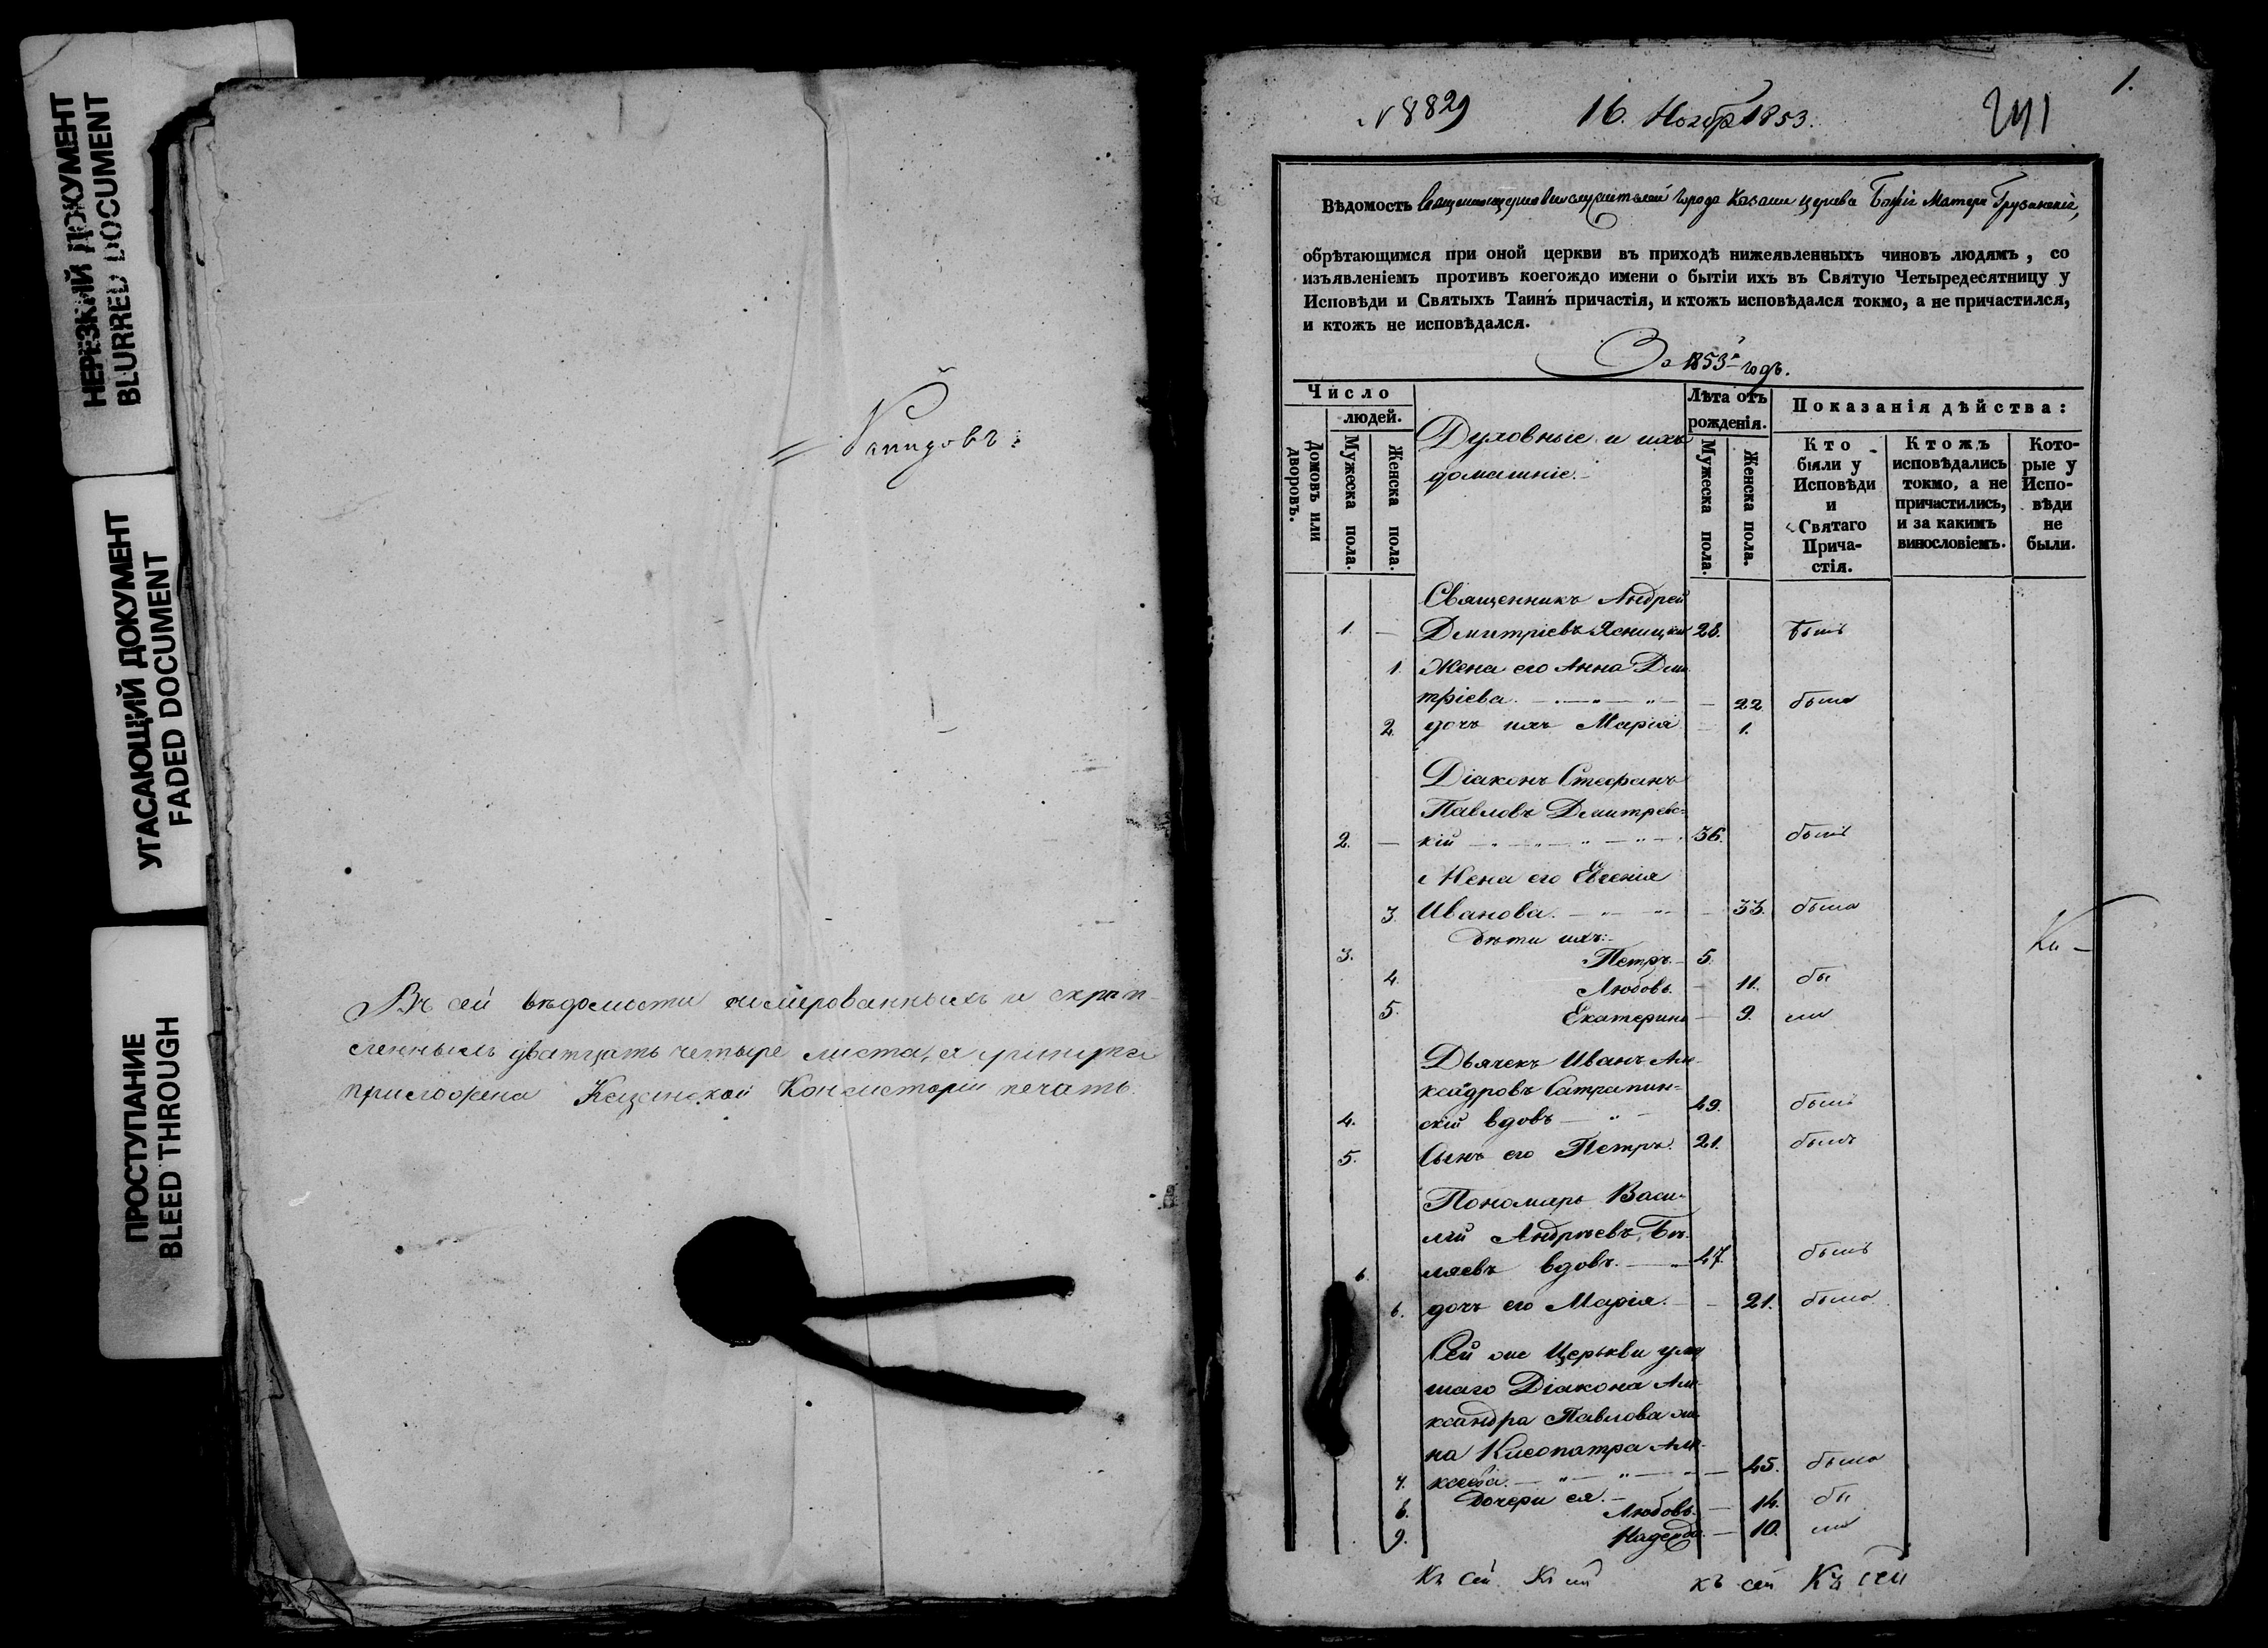 НЕРЕЗКИЙ ДОКУМЕНТ
BLURRED DOCUMENT
УГАСАЮЩИЙ ДОКУМЕНТ
FADED DOCUMENT
ПРОСТУПАНИЕ
BLEED THROUGH
Въ сей вѣдомости нумерованныхъ и скрѣп-
ленныхъ дватцать четыре листа, и
приложена Казанской Консисторіи печать.
1.
№ 8829 16. Ноябр 1853. 241
Вѣдомость Священноцерковнослужителей города Казани церкви Божіей Матери Грузинскіе,
обрѣтающимся при оной церкви въ приходѣ нижеявленныхъ чиновъ людямъ, со
изъявленіемъ противъ коегождо имени о бытіи ихъ въ Святую Четыредесятницу у
Исповѣди и Святыхъ Таинъ причастія, и ктожъ исповѣдался токмо, а не причастился,
и ктожъ не исповѣдался.
За 1853й годъ.
Число
людей.
Домовъ или дворовъ.
Мужеска пола.
Женска пола.
Духовные и ихъ
домашніе.
Лѣта отъ
рожденія.
Мужеска пола.
Женска пола.
Показанія дѣйства:
Кто
были у
Исповѣди
и
Святаго
Прича-
стія.
Ктожъ
исповѣдались
токмо, а не
причастились,
и за какимъ
винословіемъ.
Кото-
рые у
Испо-
вѣди
не
были.
Священникъ Андрей
1. — Дмитріевъ Ясницкій 28. былъ
1. Жена его Анна Дми
тріева — 22 была
2. дочь ихъ Марія — 1.
Діаконъ Стефанъ
Павловъ Дмитревс-
2. — кій 36. былъ
Жена его Евгенія
3. Иванова. — 33. была
Дѣти ихъ:
3. Петръ 5.
4. Любовь. — 11. бы
5. Екатерина — 9. ли
Ки —
Дьячекъ Иванъ Але-
ксандровъ Сатрапин-
4. скій вдовъ 49. былъ
5. Сынъ его Петръ. 21. былъ
Пономарь Васи-
лій Андреевъ Бѣ-
6. ляевъ вдовъ. 47. былъ
6. дочь его Марія. — 21. была
Сей же Церкви умер
шаго Діакона Але-
ксандра Павлова же
на Клеопатра Але-
7. ксеева. — 45. была
Дочери ея.
8. Любовь. — 14. бы
9. Надежда. — 10. ли
Къ сей Къ сей къ сей Къ сей